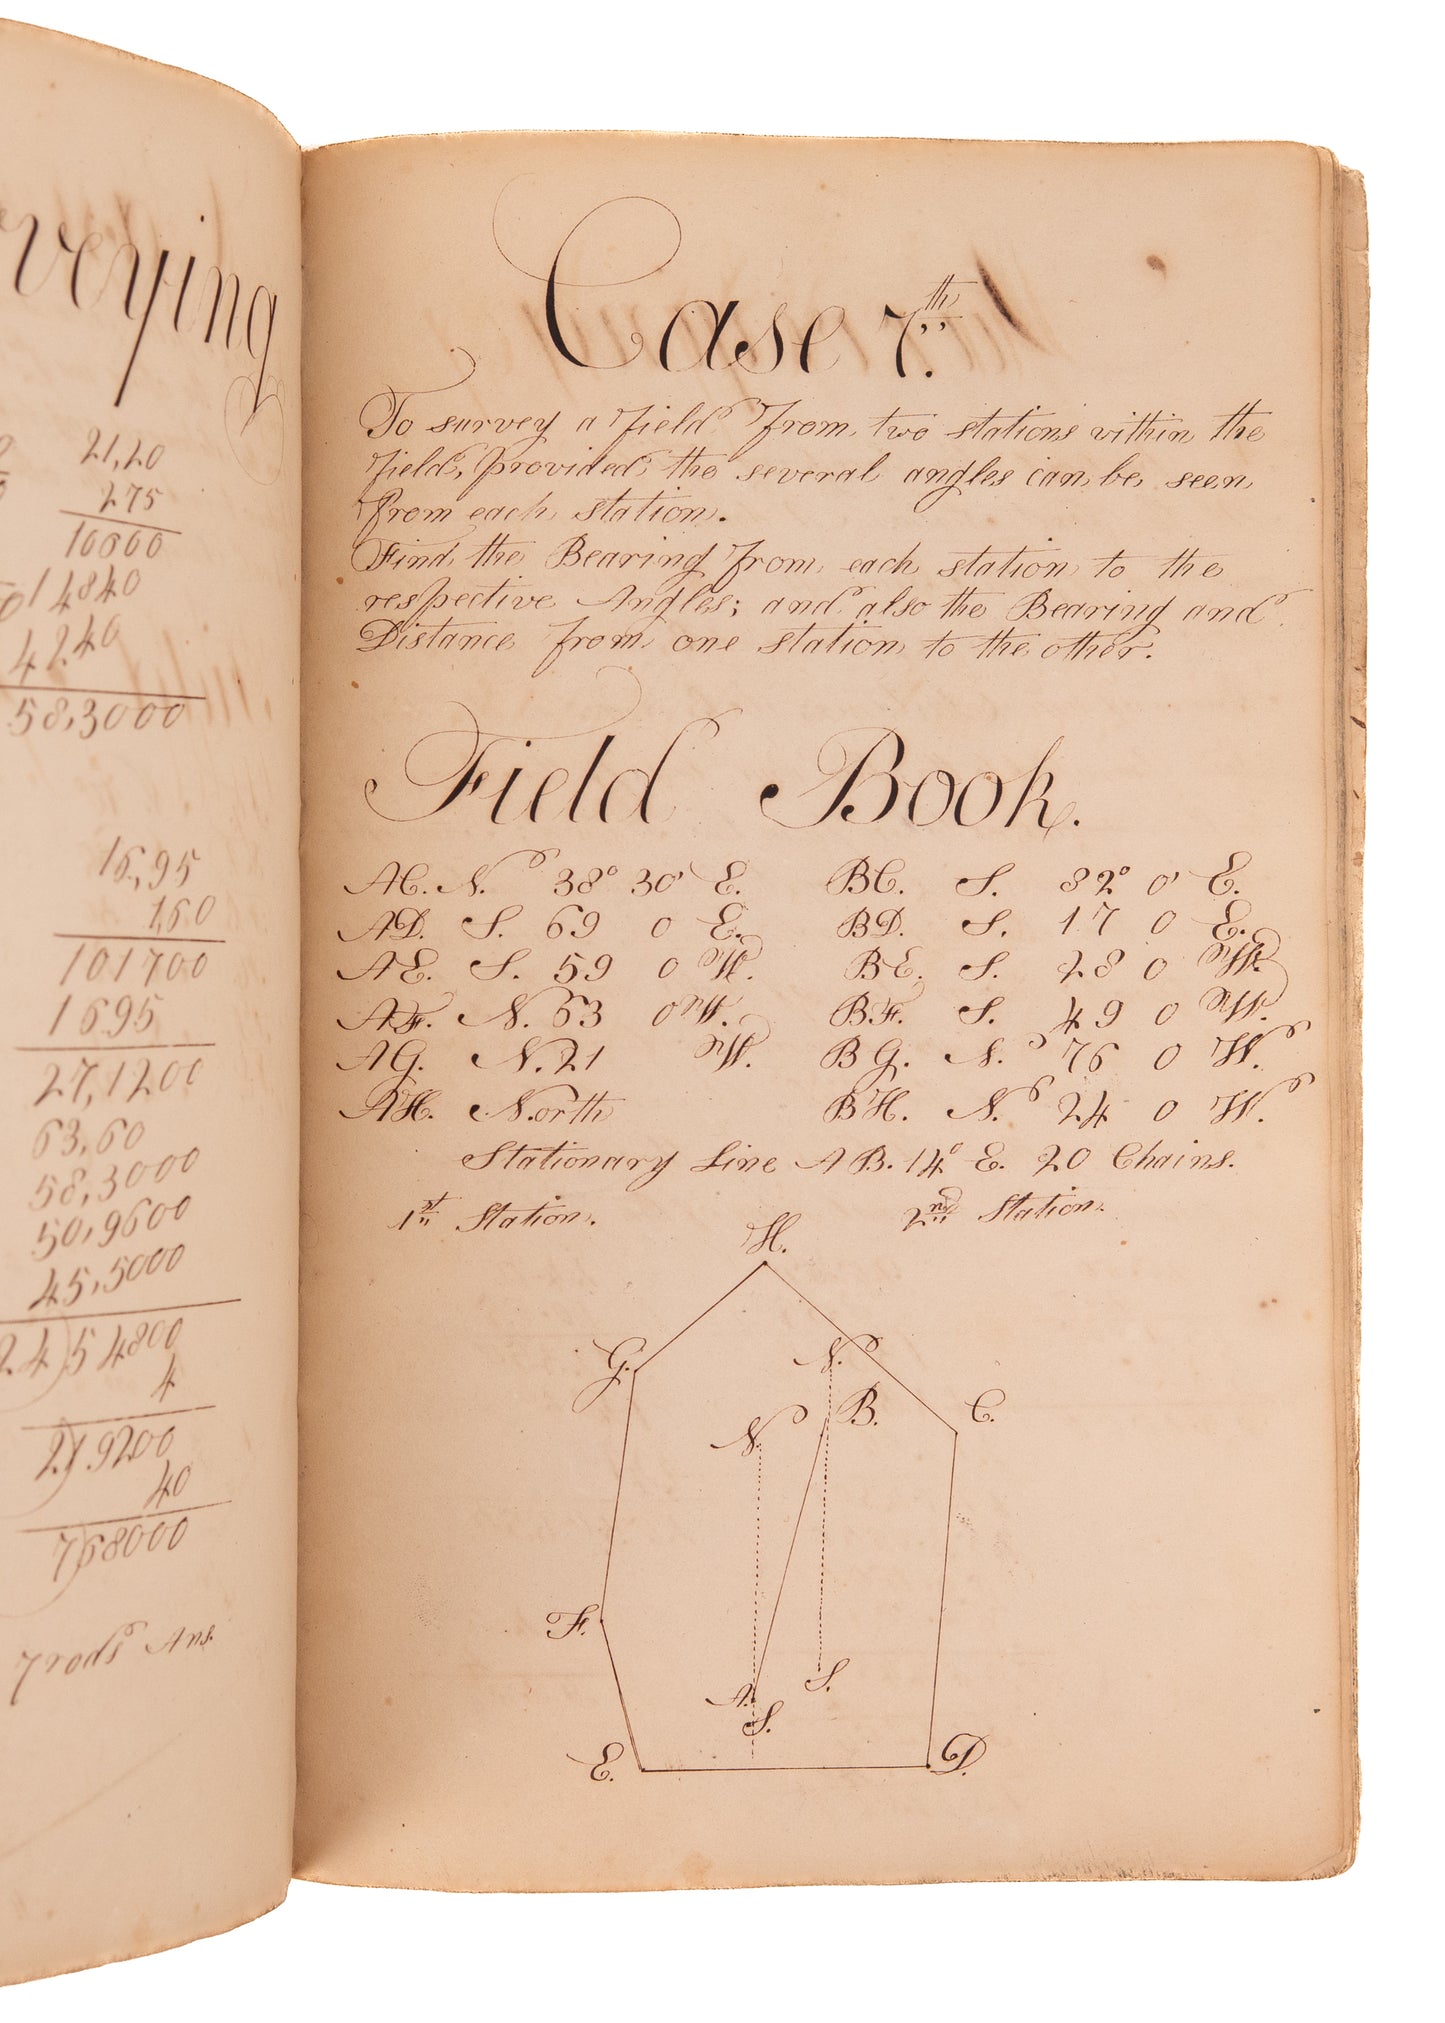 veying
21,20
275
10600
14840
4240
58,3000
16,95
1,60
101700
1695
27,1200
63,60
58,3000
50,9600
45,5000
2.4)54800
4
2)19200
40
7)68000
7 rods Ans.
Case 7.th
To survey a field from two stations within the
field, provided the several angles can be seen
from each station.
Find the Bearing from each station to the
respective Angles; and also the Bearing and
Distance from one station to the other.
Field Book.
AC. N. 38° 30' E. BC. S. 82° 0' E.
AD. S. 69 0 E. BD. S. 17 0 E.
AE. S. 59 0 W. BE. S. 28 0 W.
AF. N. 63 0 W. BF. S. 49 0 W.
AG. N. 21 W. BG. N. 76 0 W.
AH. North BH. N. 24 0 W.
Stationary Line AB. 14° E. 20 Chains.
1st Station. 2nd Station.
H.
G. N.
B. C.
N.
F.
S.
A.
S.
E. D.